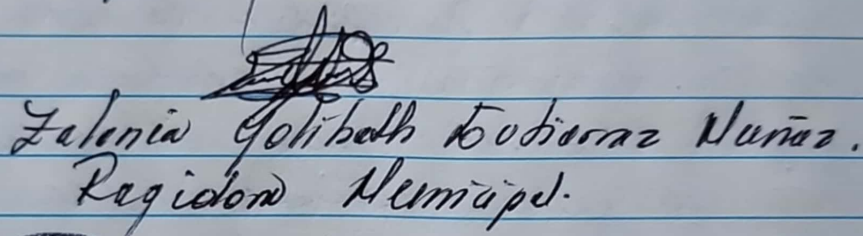 Zelenia Yolibeth Gutierrez Nuñez.
Regidora Municipal.